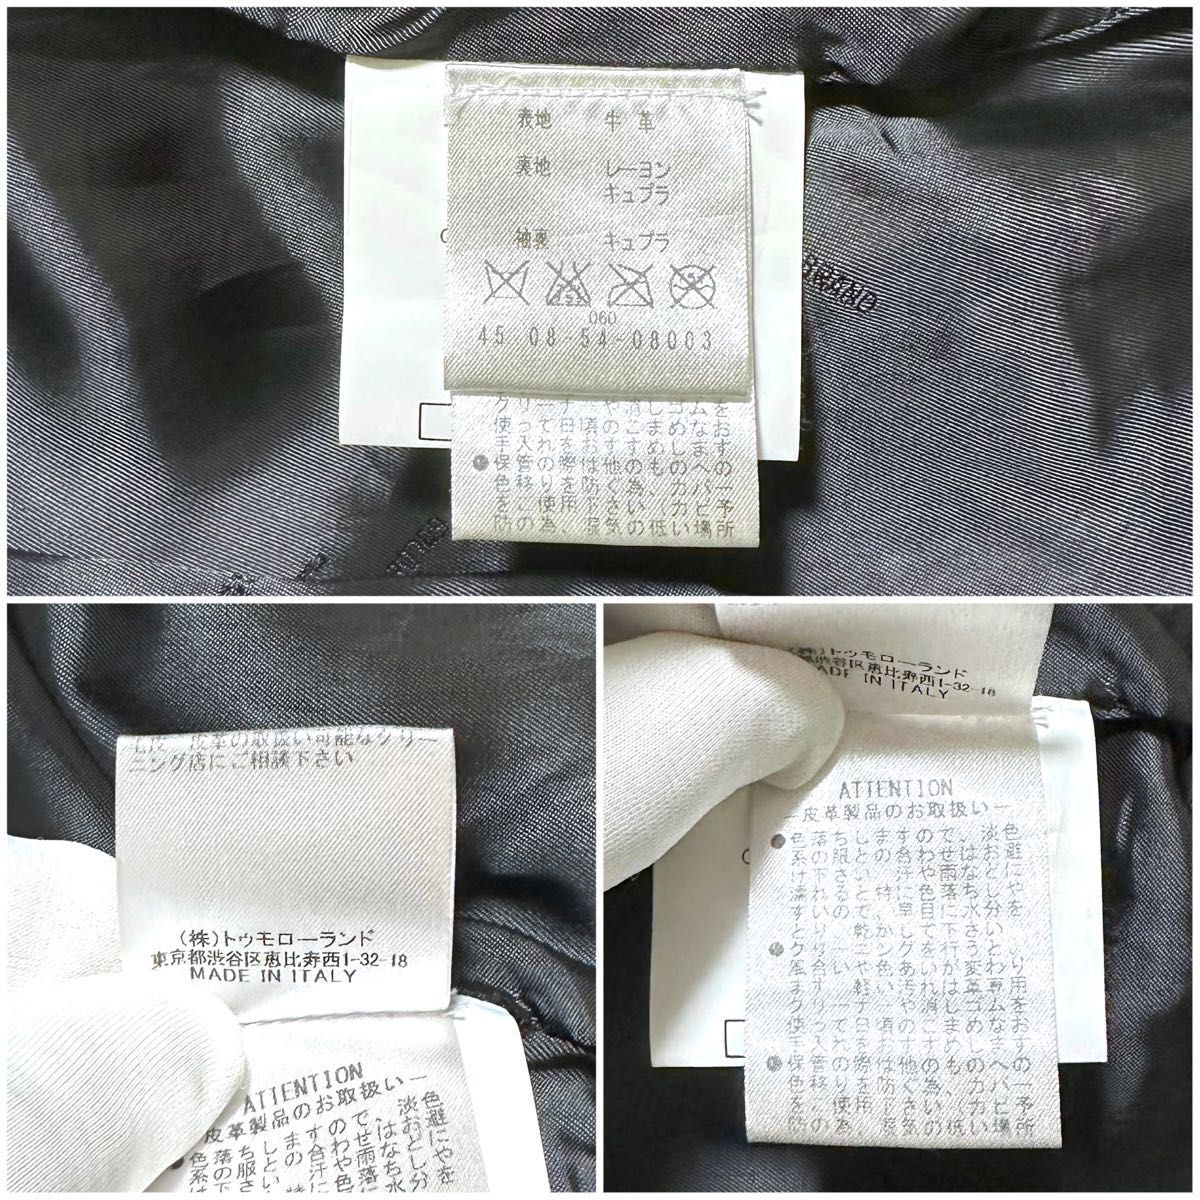 表地 牛革
裏地 レーヨン
キュプラ
袖裏 キュプラ
060
45 08-54-08003
クリーナーや消しゴムを
使って日頃のこまめなお
手入れをおすすめします
●保管の際は他のものへの
色移りを防ぐ為、カバー
をご使用下さい。カビ予
防の為、湿気の低い場所
皮革の取扱い可能なクリー
ニング店にご相談下さい
(株)トゥモローランド
東京都渋谷区恵比寿西1-32-18
MADE IN ITALY
ATTENTION
皮革製品のお取扱い—
(株)トゥモローランド
渋谷区恵比寿西1-32-18
MADE IN ITALY
ATTENTION
—皮革製品のお取扱い—
●色落ちしますので、淡色
系の服との合わせはお避
け下さい。汗や雨などに
濡れると特に色落ちしや
すいので、早目に水分を
とり、乾かして下さい。
●クリーニングを行うと、
風合いや色あいが変わり
ます。軽い汚れは革専用
クリーナーや消しゴムを
使って日頃のこまめなお
手入れをおすすめします
●保管の際は他のものへの
色移りを防ぐ為、カバー
をご使用下さい。カビ予
防の為、湿気の低い場所